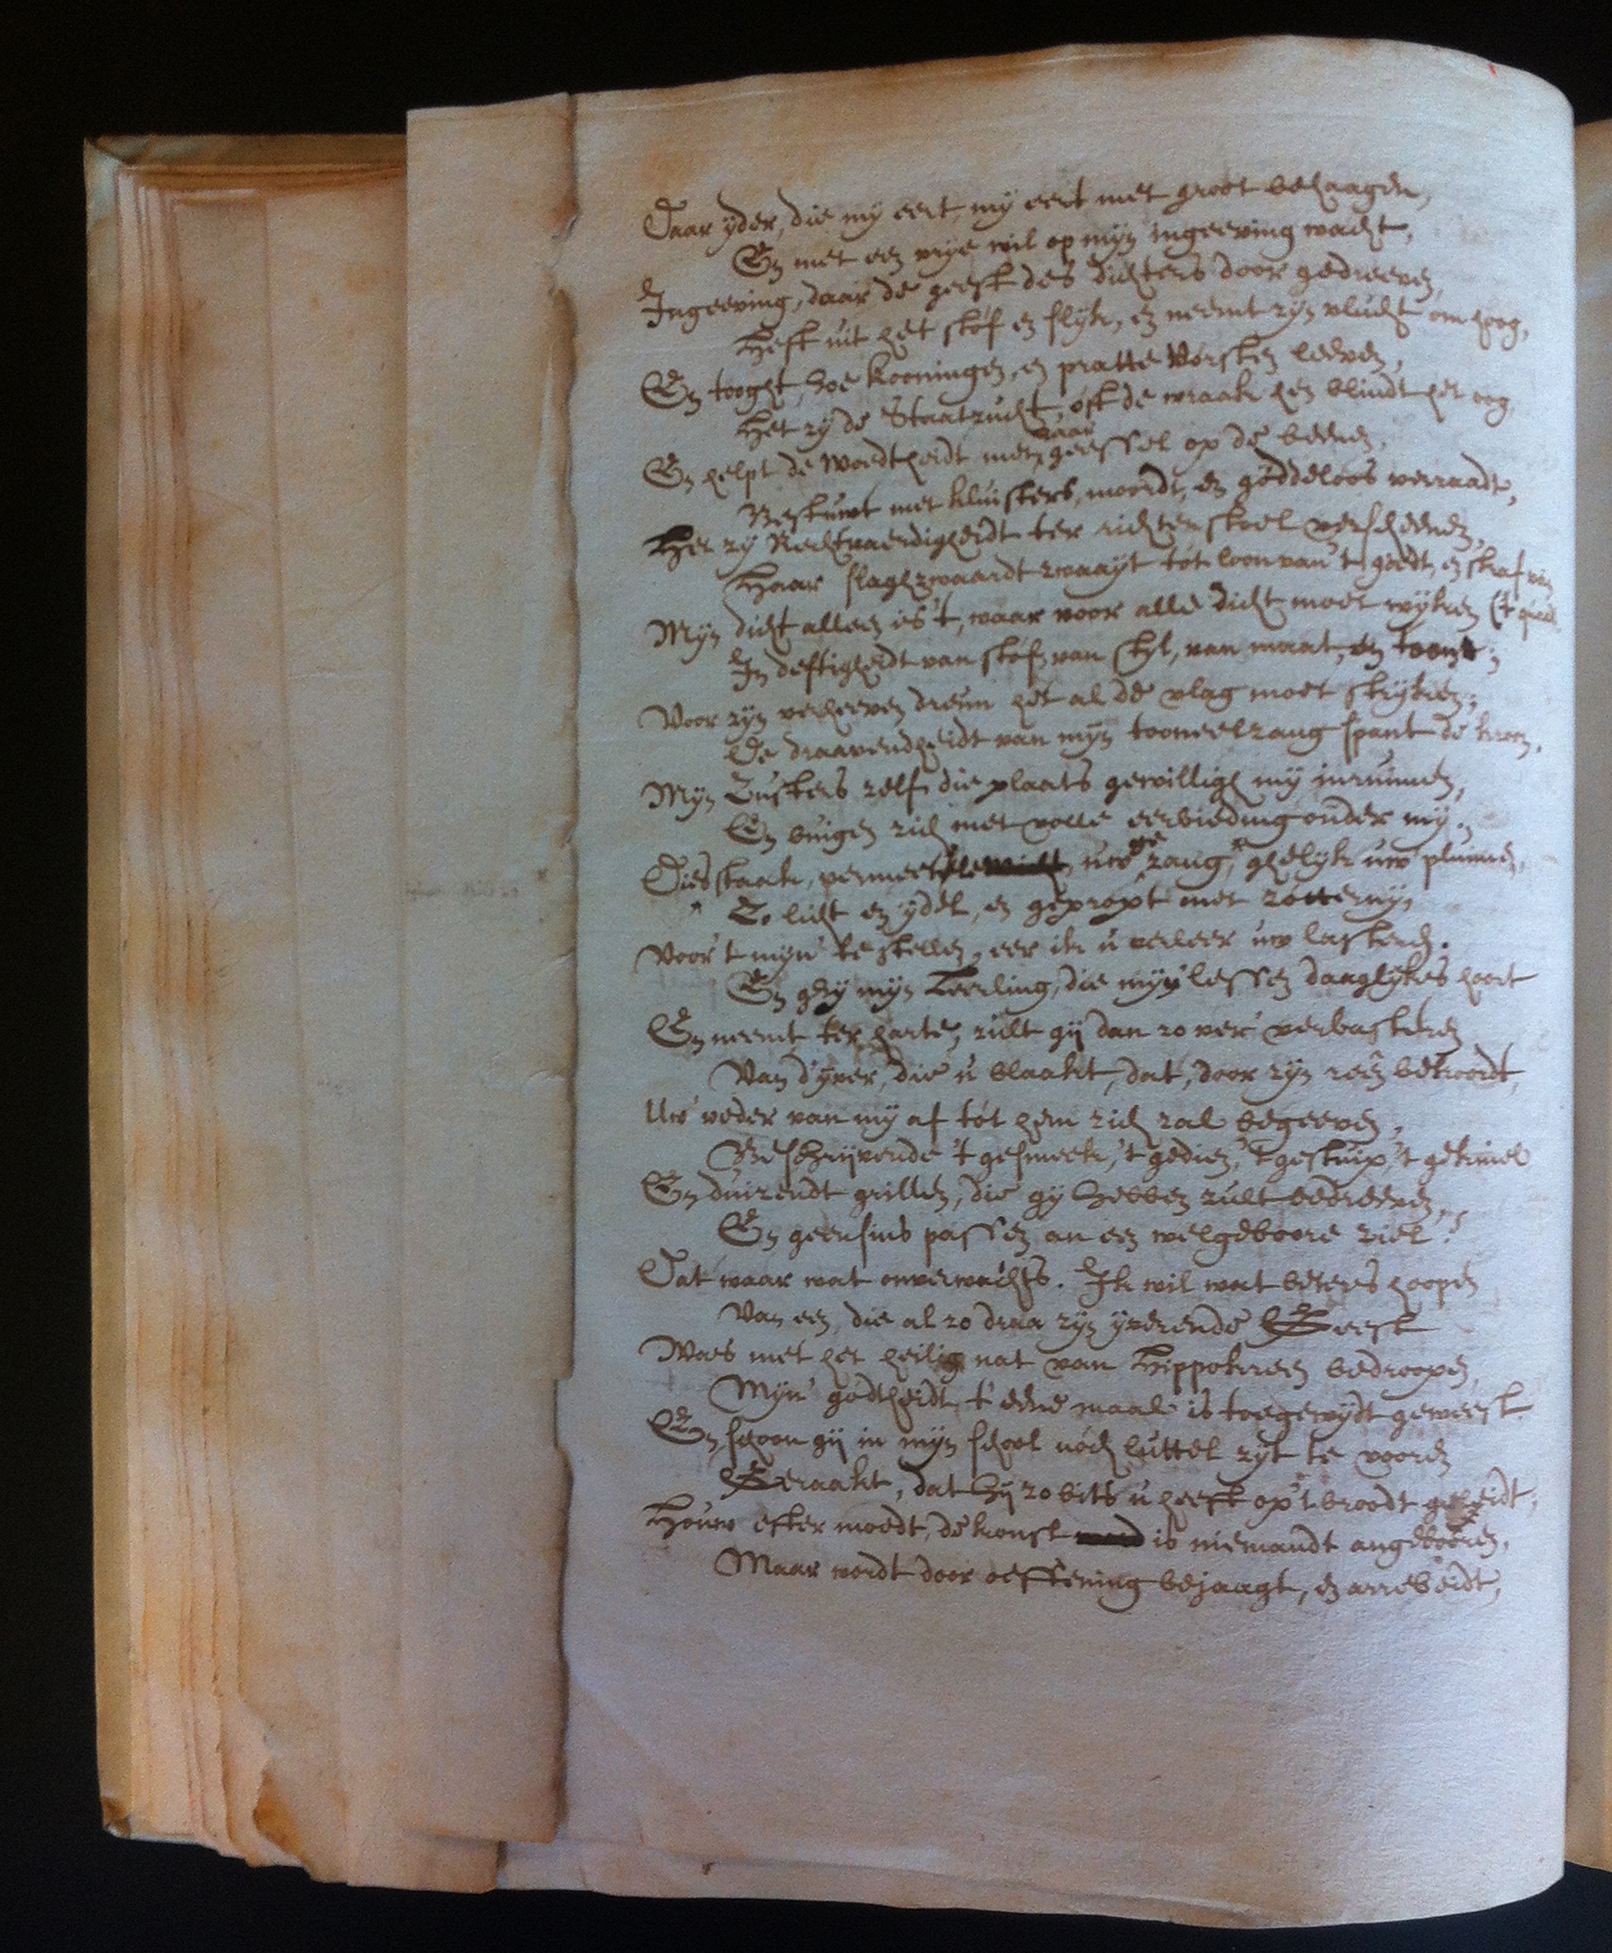 Daar yder, die my eert, my eert met groot behaagen,
En met een vrye wil op mijn ingeeving wacht,
Ingeeving, daar de geest des dichters door gedreeven,
Heft uit het stof en slyk, en neemt zyn vlucht om hoog,
En tooght, hoe kooningen, en pratte Vorsten leeven,
Het zy de Staatzucht, oft de wraak hen blindt het oog,
En helpt de Woedtheidt met haar geessel op de beenen,
Bestuwt met kluisters, moordt, en goddeloos verraadt,
Het zy Rechtvaerdigheidt ter richterstoel verscheenen,
Haar slaghzwaardt zwaayt tot loon van 't goedt, en straf van
Mijn dicht alleen is 't, waar voor alle dicht moet wyken ('t quaadt
In deftigheidt van stof, van styl, van maat, en toon;
Voor zyn verheeven dreun het al de vlag moet stryken;
De draavendheidt van mijn tooneelzang spant de kroon.
Mijn Zusters zelf die plaats gewilligh my inruimen,
En buigen zich met volle eerbieding onder my.
Dies staak, vermeetle uwe zang, gelyk uw pluimen,
Zo licht en ydel, en gepropt met zotterny,
Voor 't mijn' te stellen, eer ik u verleer uw lasteren.
En ghy mijn Leerling, die mijn' lessen daaglykes hoort
En neemt ter harte, zult gij dan zo ver verbasteren
Van d'yver, die u blaakt, dat, door zyn reên bekoordt,
Uw veder van my af tot hem zich zal begeeven,
Beschryvende 't gesmeek, 't gedien, 't gestuip, 't gekniel
En duizendt grillen, die gy hebben zult bedreeven,
En geensins passen an een welgeboore ziel?
Dat waar wat onverwachts. Ik wil wat beters hoopen
Van een, die al zo draa zyn yverende Geest
Was met het heilig nat van Hippokreen bedroopen,
Mijn' godtheidt t'eene maal is toegewydt geweest.
En, schoon gij in mijn school noch luttel zyt te vooren
Geraakt, dat hij zo bits u heeft op 't broodt geleidt,
Houw efter moedt, de konst is niemandt angebooren,
Maar wordt door oeffening bejaagt, en arrebeidt,